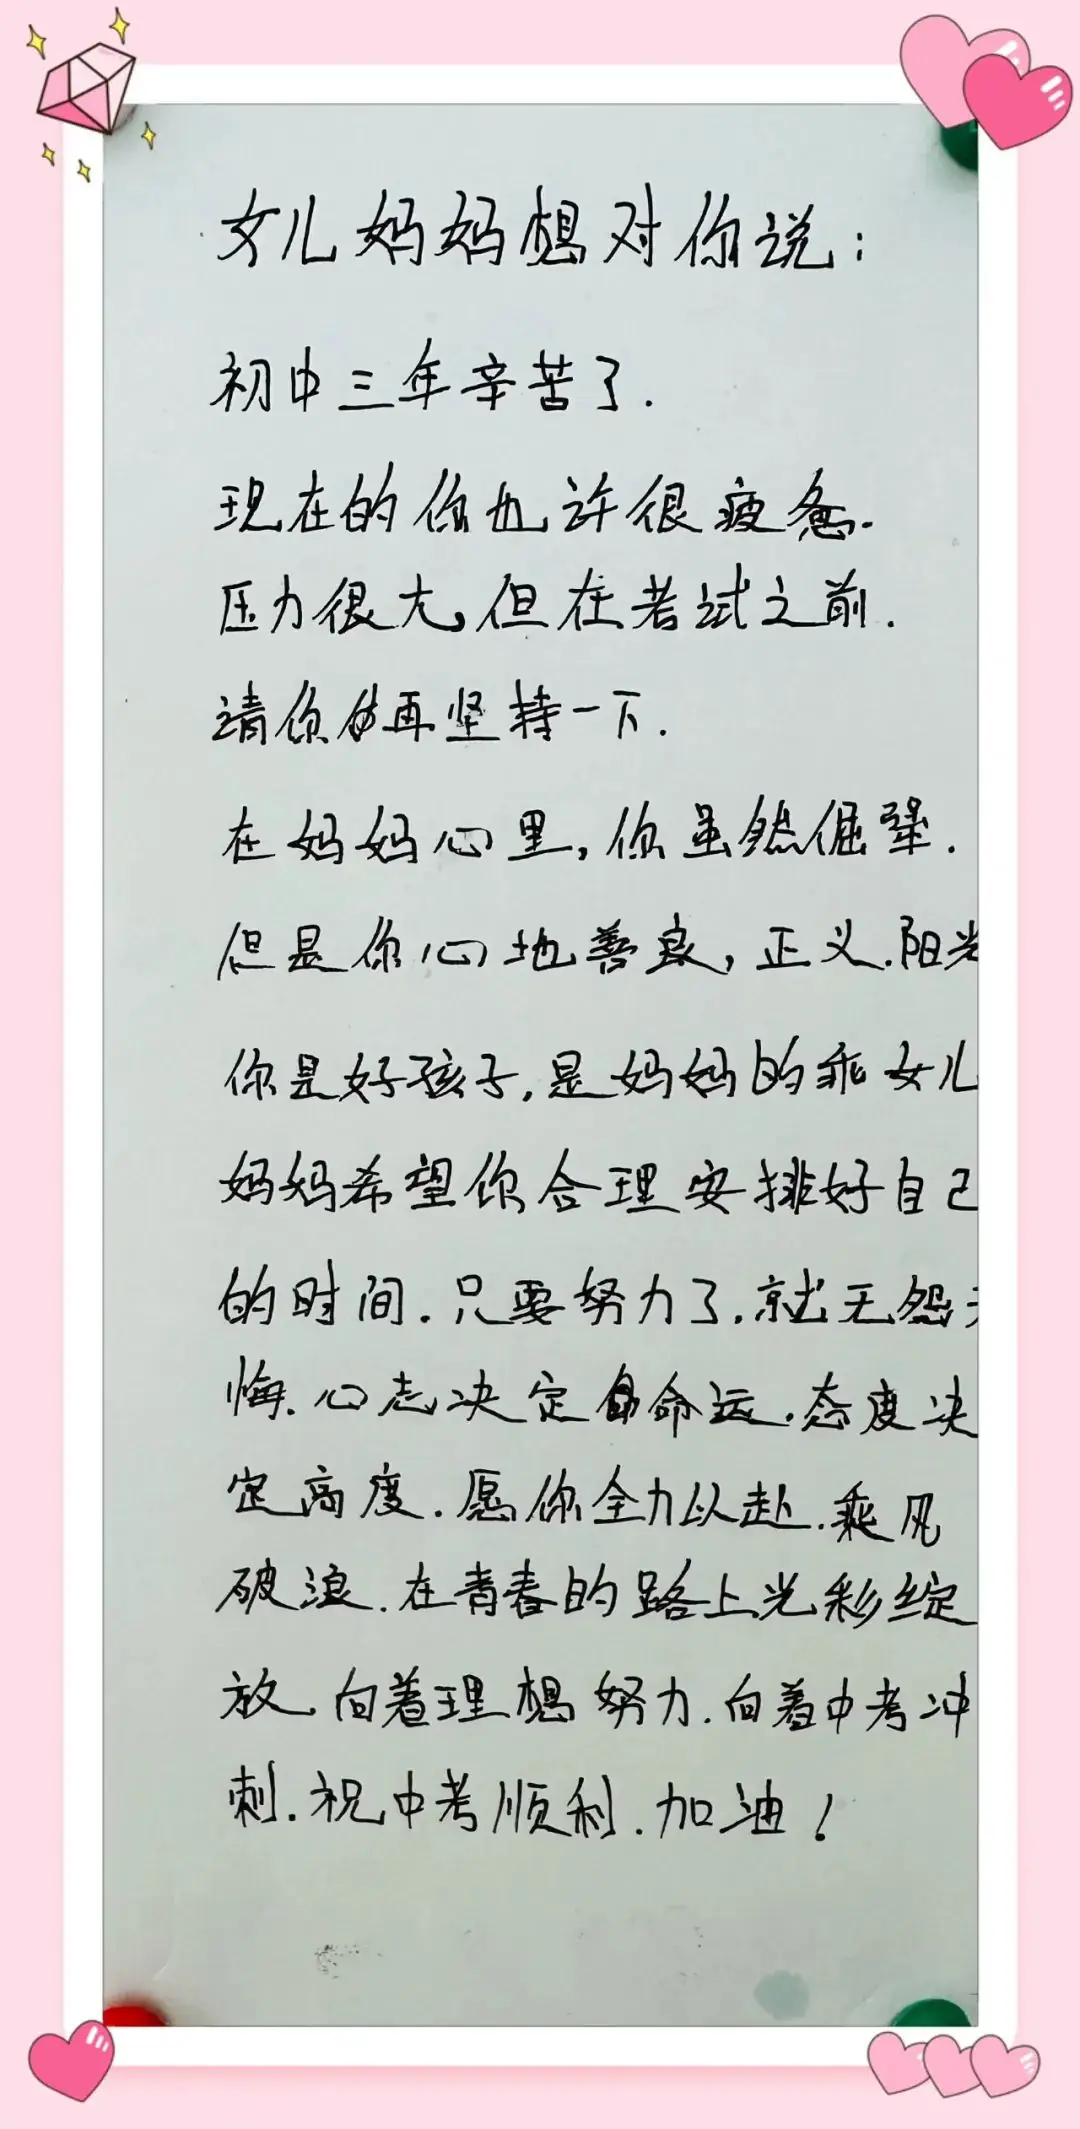 女儿妈妈想对你说：
初中三年辛苦了.
现在的你也许很疲惫.
压力很大,但在考试之前.
请你再坚持一下.
在妈妈心里,你虽然倔犟.
但是你心地善良,正义.阳光
你是好孩子,是妈妈的乖女儿
妈妈希望你合理安排好自己
的时间.只要努力了.就无怨无
悔.心志决定命运.态度决
定高度.愿你全力以赴.乘风
破浪.在青春的路上光彩绽
放.向着理想努力.向着中考冲
刺.祝中考顺利.加油!